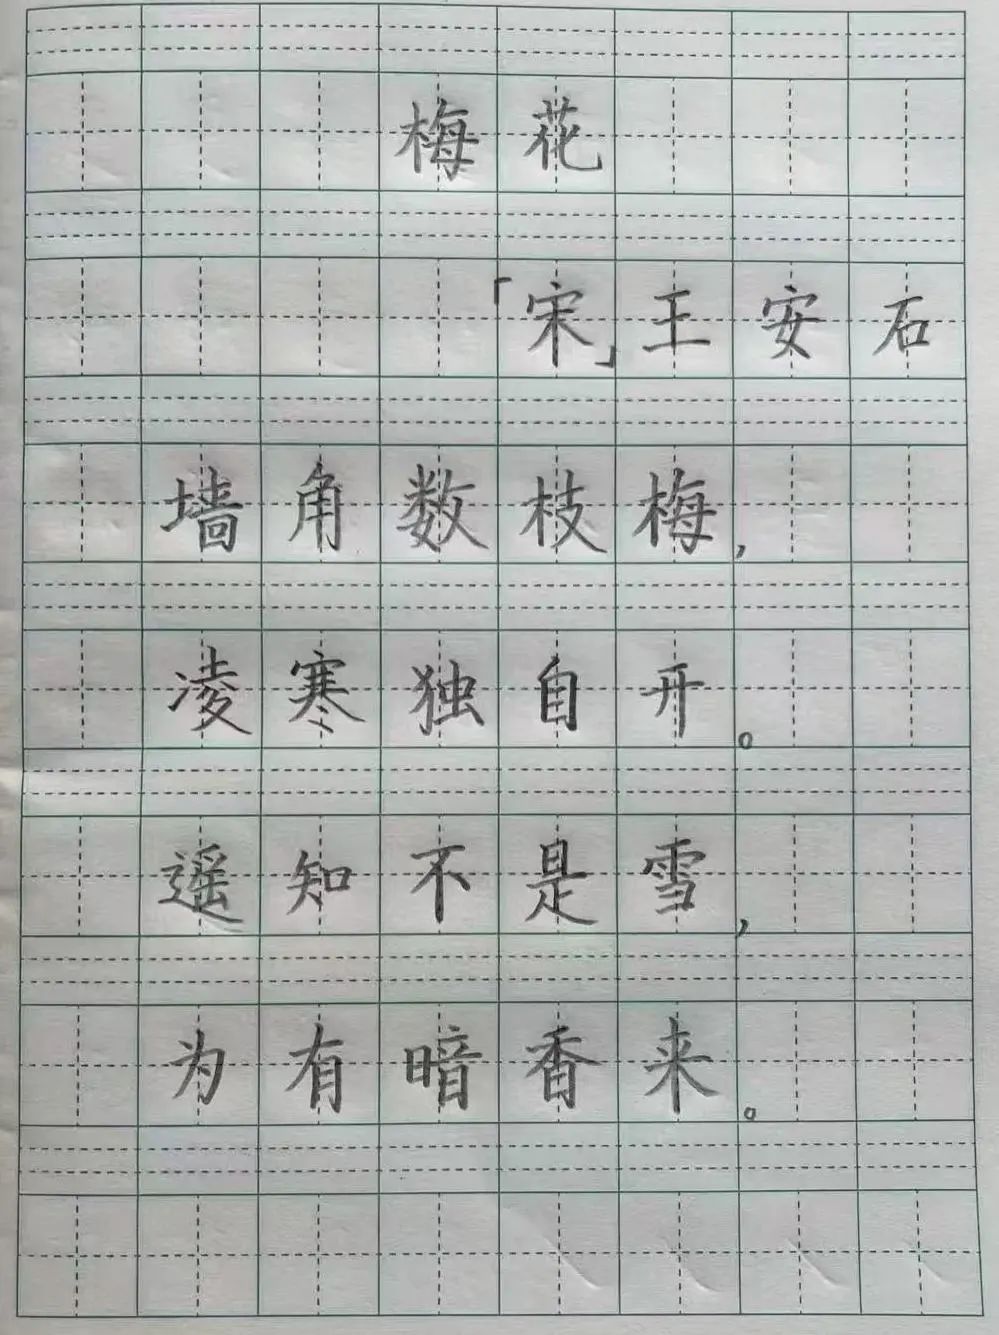 梅花
「宋」王安石
墙角数枝梅,
凌寒独自开。
遥知不是雪,
为有暗香来。